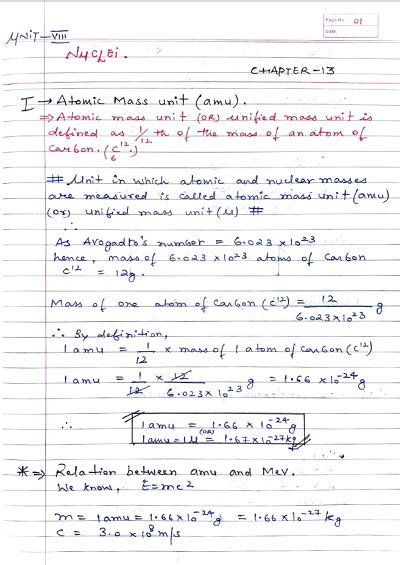 Page No: 01
Date:
UNIT-VIII
NUCLEi.
CHAPTER-13
I → Atomic Mass unit (amu).
⇒ Atomic mass unit (OR) unified mass unit is
defined as 1/12 th of the mass of an atom of
carbon. (₆C¹²)
# Unit in which atomic and nuclear masses
are measured is called atomic mass unit (amu)
(or) unified mass unit (u) #
∴ As Avogadro's number = 6.023 × 10²³
hence, mass of 6.023 × 10²³ atoms of carbon
C¹² = 12g.
Mass of one atom of carbon (C¹²) = 12 / 6.023 × 10²³ g
∴ By definition,
1 amu = 1/12 × mass of 1 atom of carbon (C¹²)
1 amu = 1/12 × 12 / 6.023 × 10²³ g = 1.66 × 10⁻²⁴ g
∴ 1 amu = 1.66 × 10⁻²⁴ g
(OR)
1 amu = 1u = 1.67 × 10⁻²⁷ kg
* ⇒ Relation between amu and Mev.
We know, E=mc²
m = 1 amu = 1.66 × 10⁻²⁴ g = 1.66 × 10⁻²⁷ kg
C = 3.0 × 10⁸ m/s